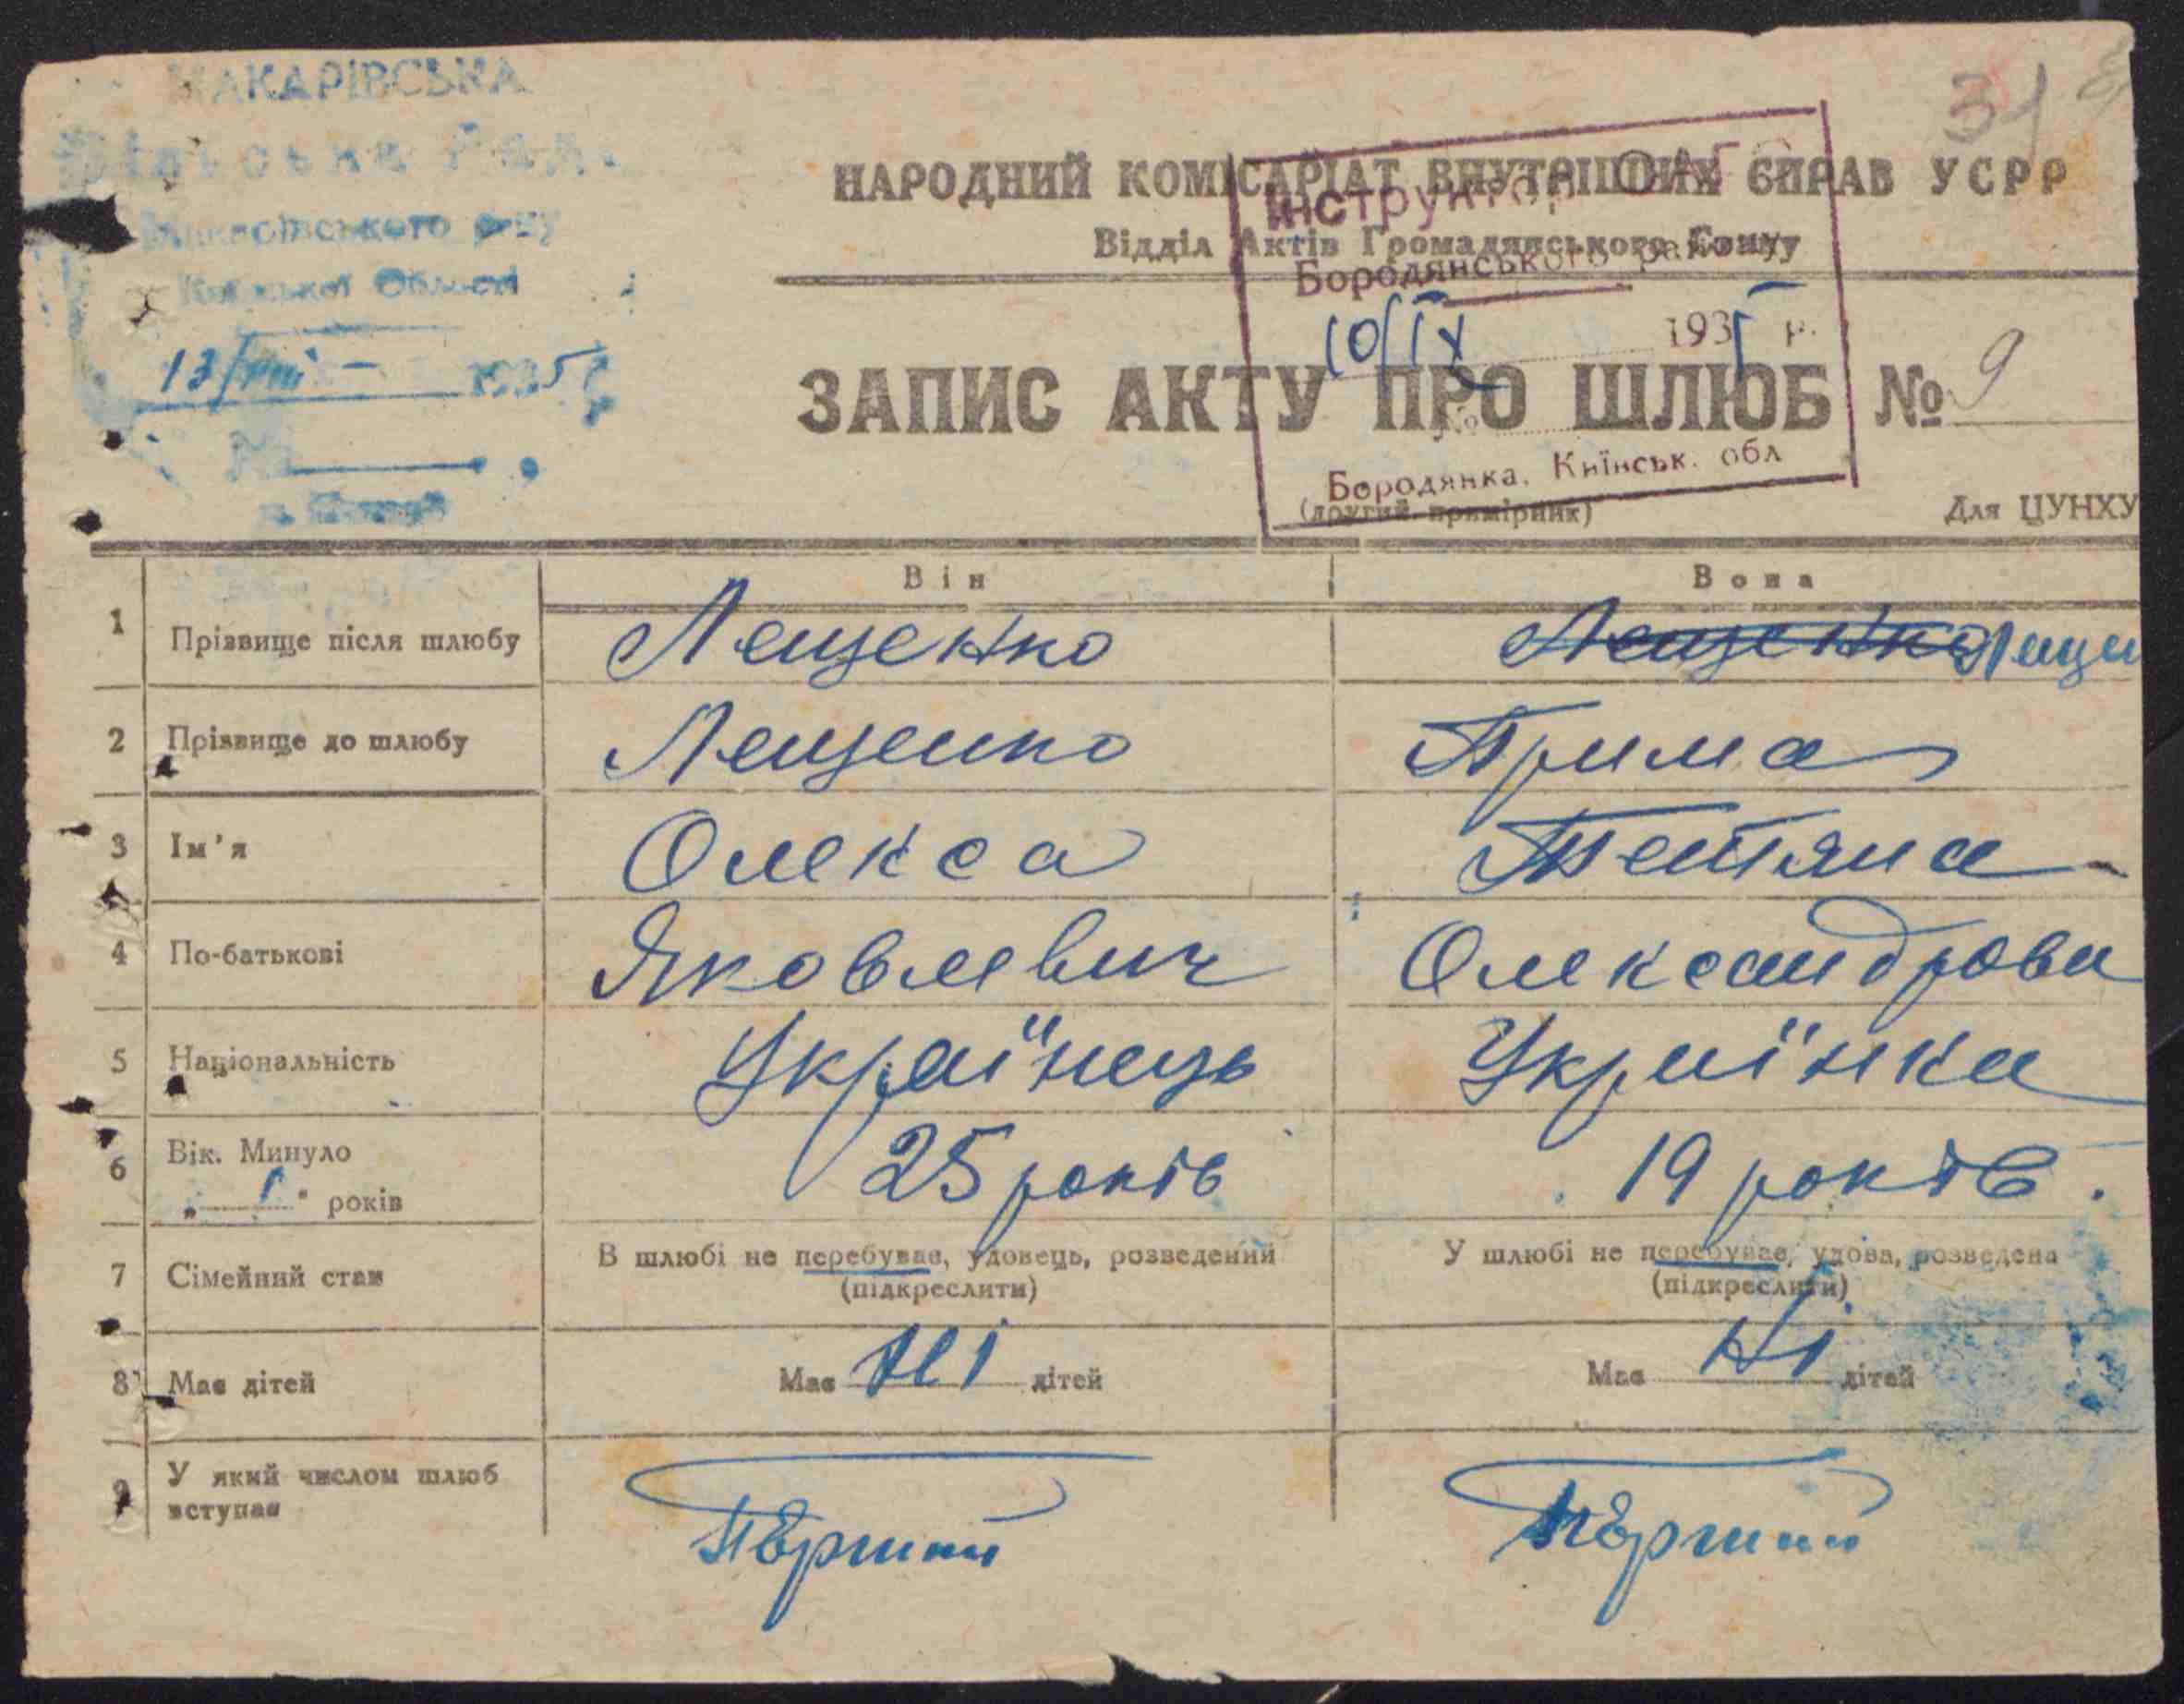 МАКАРІВСЬКА
Сільська Рада
Макарівського р-ну
Київської Області
13/VIII – 1935
№
34
НАРОДНИЙ КОМІСАРІАТ ВНУТРІШНІХ СПРАВ УСРР
Відділ Актів Громадянського Стану
Інструктор ОАГС
Бородянського району
10/IX 1935 р.
№
Бородянка, Київськ. обл
ЗАПИС АКТУ ПРО ШЛЮБ № 9
(другий примірник)
Для ЦУНХУ
Він Вона
1 Прізвище після шлюбу Лещенко Лещенко Лещен
2 Прізвище до шлюбу Лещенко Прима
3 Ім'я Олекса Тетяна
4 По-батькові Яковлевич Олександрова
5 Національність Українець Українка
6 Вік. Минуло 25 років 19 років
„ " років
7 Сімейний стан В шлюбі не перебуває, удовець, розведений У шлюбі не перебуває, удова, розведена
(підкреслити) (підкреслити)
8 Має дітей Має Ні дітей Має Ні дітей
9 У який числом шлюб
вступає Перший Перший